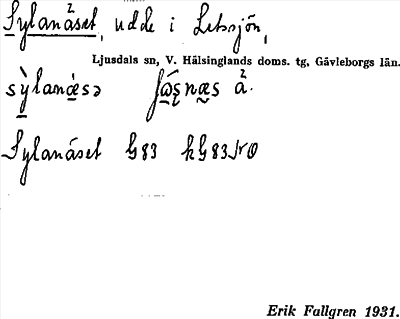 Sylanäset, udde i Letssjön,
Ljusdals sn, V. Hälsinglands doms. tg, Gävleborgs län.
Sylanäset G 83 kG83 NO
Erik Fallgren 1931.